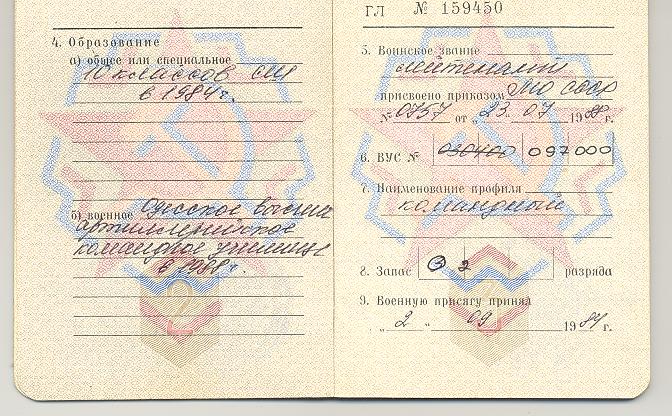 4. Образование
а) общее или специальное
10 классов СШ
в 1984г.
б) военное Одесское высшее
артиллерийское
командное училище
в 1988г.
ГЛ № 159450
5. Воинское звание
лейтенант
присвоено приказом МО СССР
№ 0757 от „ 23 „ 07 1988 г.
6. ВУС № 030400 097000
7. Наименование профиля
командный
8. Запас 2 разряда
9. Военную присягу принял
„ 2 „ 09 1984 г.